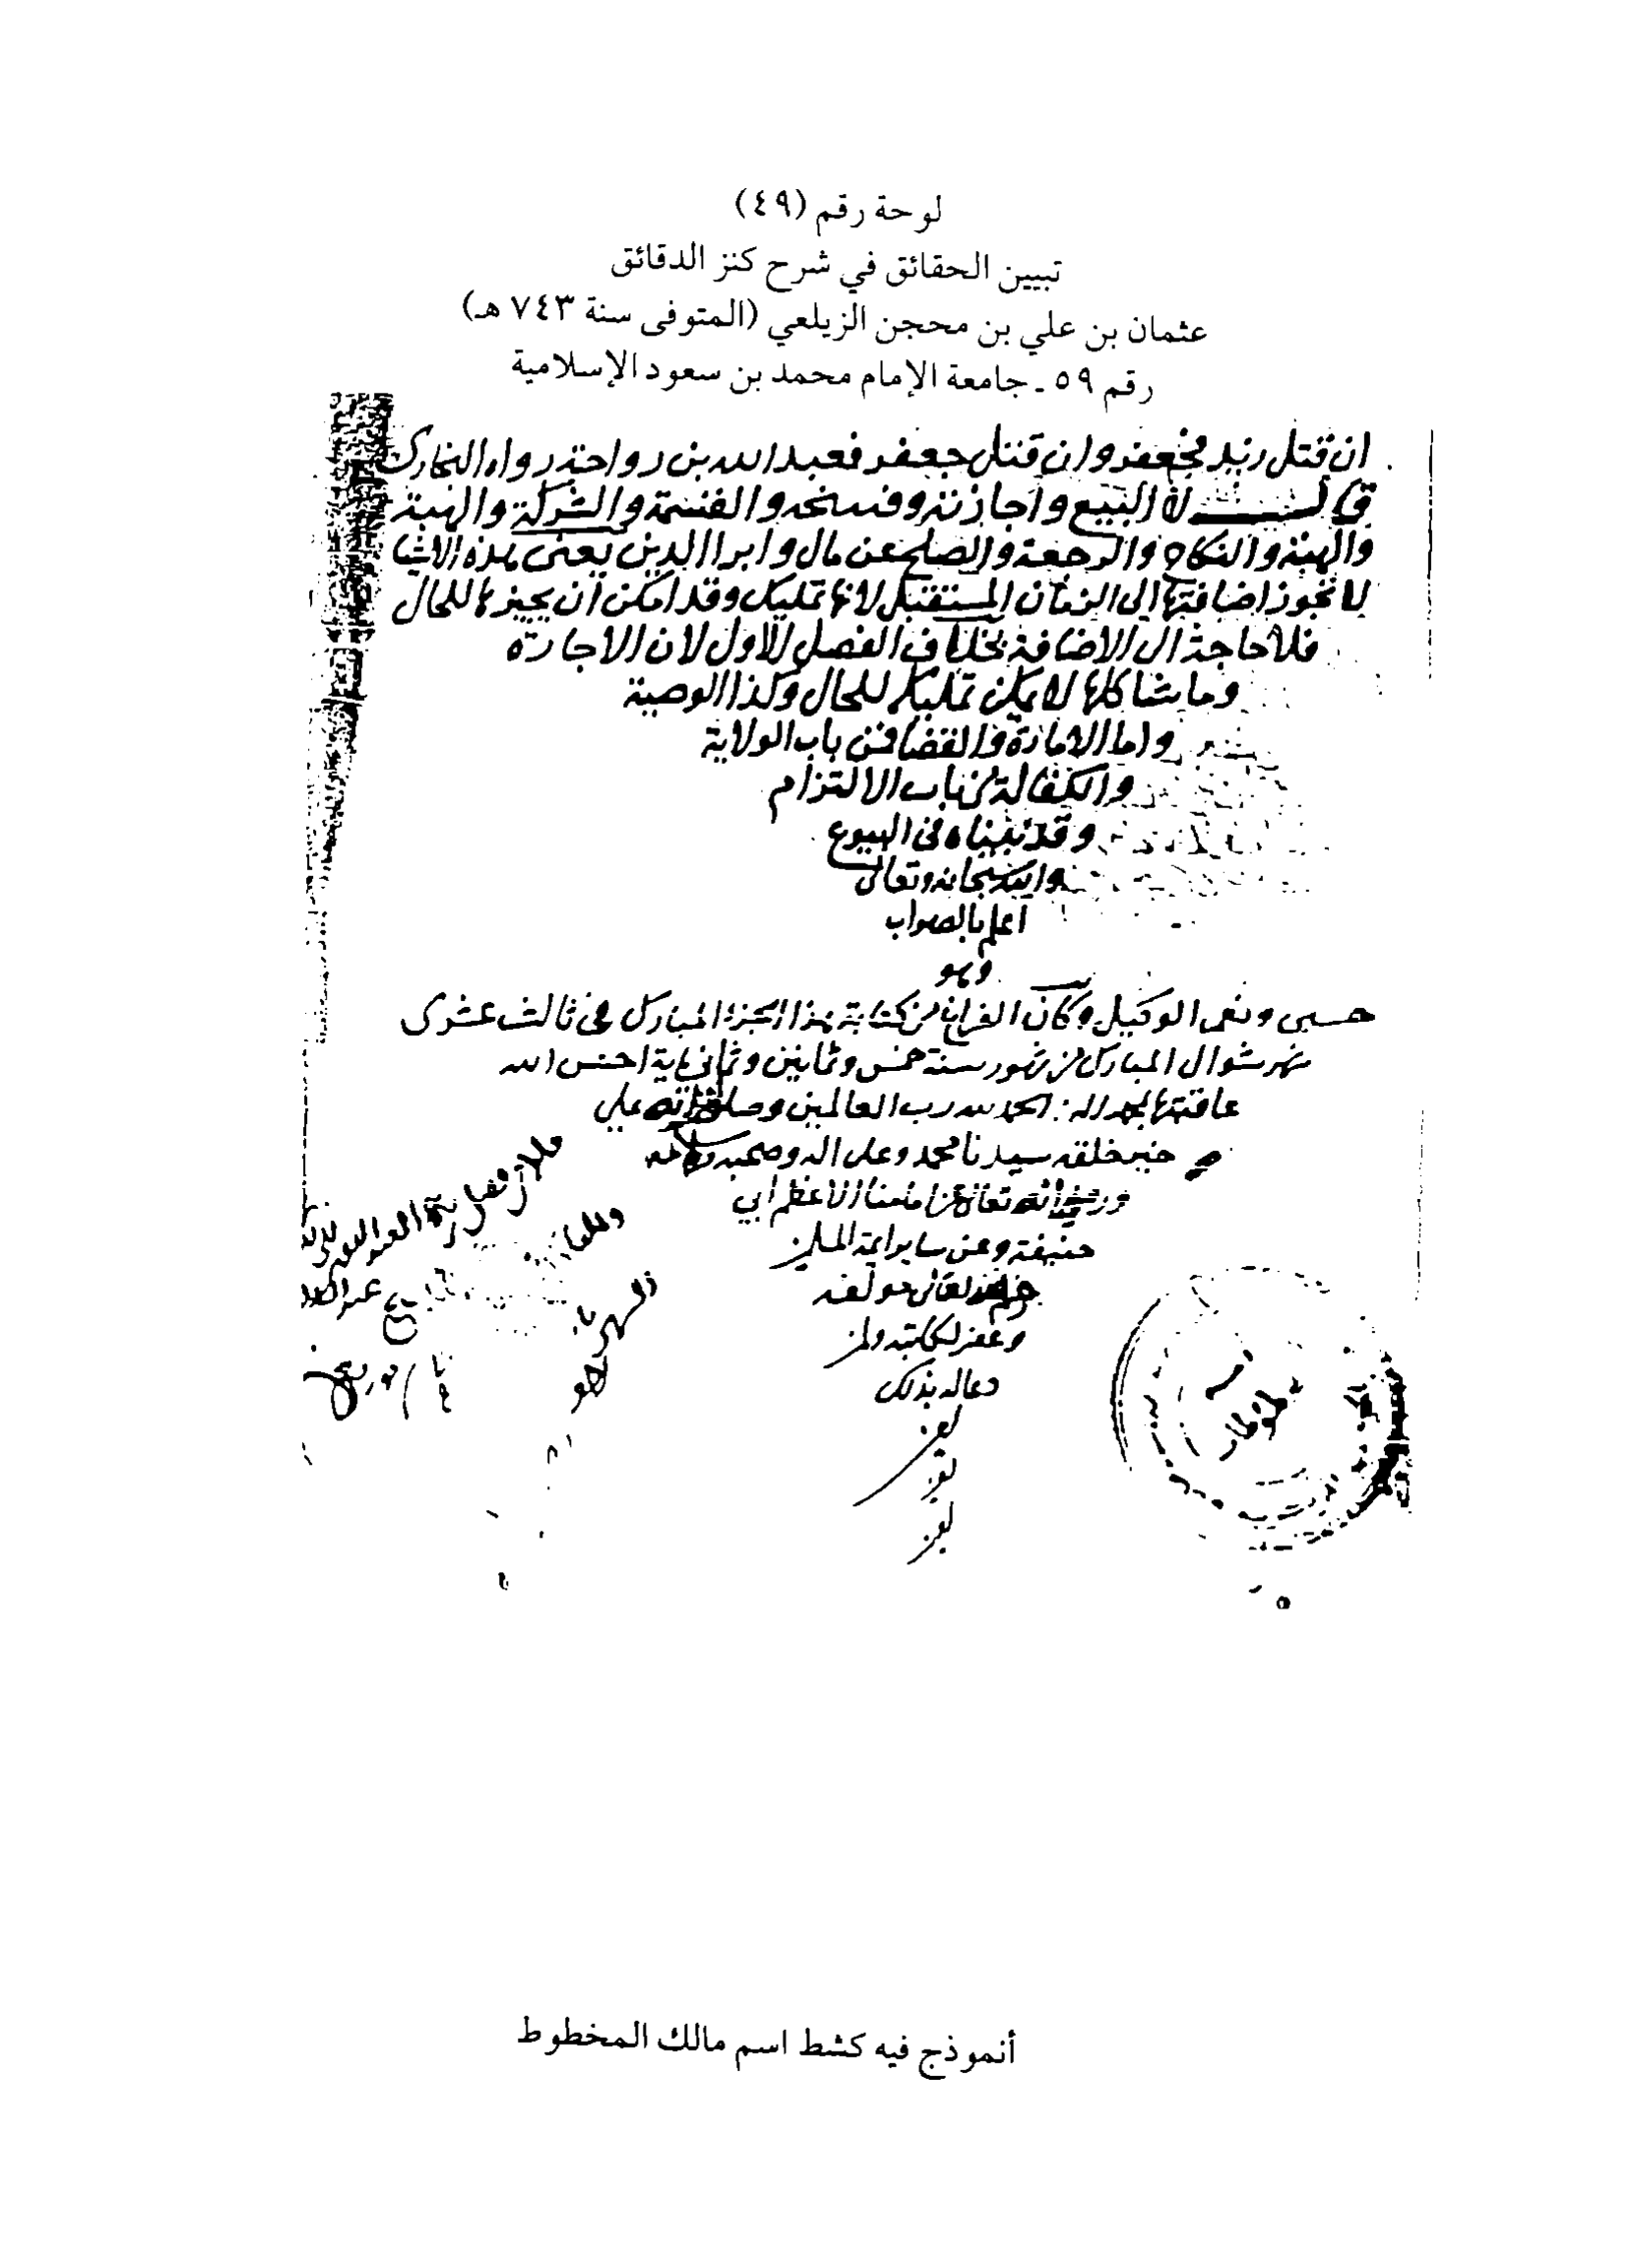 لوحة رقم (٤٩)
تبيين الحقائق في شرح كنز الدقائق
عثمان بن علي بن محجن الزيلعي (المتوفى سنة ٧٤٣ هـ)
رقم ٥٩ ـ جامعة الإمام محمد بن سعود الإسلامية
ان قتل زيد فجعفر وان قتل جعفر فعبد الله بن رواحة رواه البخارى
قال لا البيع واجازته وفسخه والقسمة والشركة والهبة
والهبة والنكاح والرجعة والصلح عن مال وابرا الدين يعنى هذه الاشيا
لا تجوز اضافتها الى الزمان المستقبل لانها تمليك وقد امكن ان يجيزها للحال
فلا حاجة الى الاضافة بخلاف الفصل الاول لان الاجارة
وما شاكلها لا يمكن تمليكه للحال وكذا الوصية
واما الامارة والقضا فمن باب الولاية
والكفالة من باب الالتزام
وقد بيناه فى البيوع
والله سبحانه وتعالى
اعلم بالصواب
وهو
حسبى ونعم الوكيل وكان الفراغ من كتابة هذا الجزء المبارك فى ثالث عشرى
شهر شوال المبارك من شهور سنة خمس وثمانين وثمانماية احسن الله
عاقبتها بمحمد واله الحمد لله رب العالمين وصلواته على
خير خلقه سيدنا محمد وعلى اله وصحبه
ورضى الله تعالى عن امامنا الاعظم ابي
حنيفة وعن ساير ايمة المسلمين
تعالى مولفه
وغفر لكاتبه ولمن
دعا له بذلك
العبد
عبد
أنموذج فيه كشط اسم مالك المخطوط